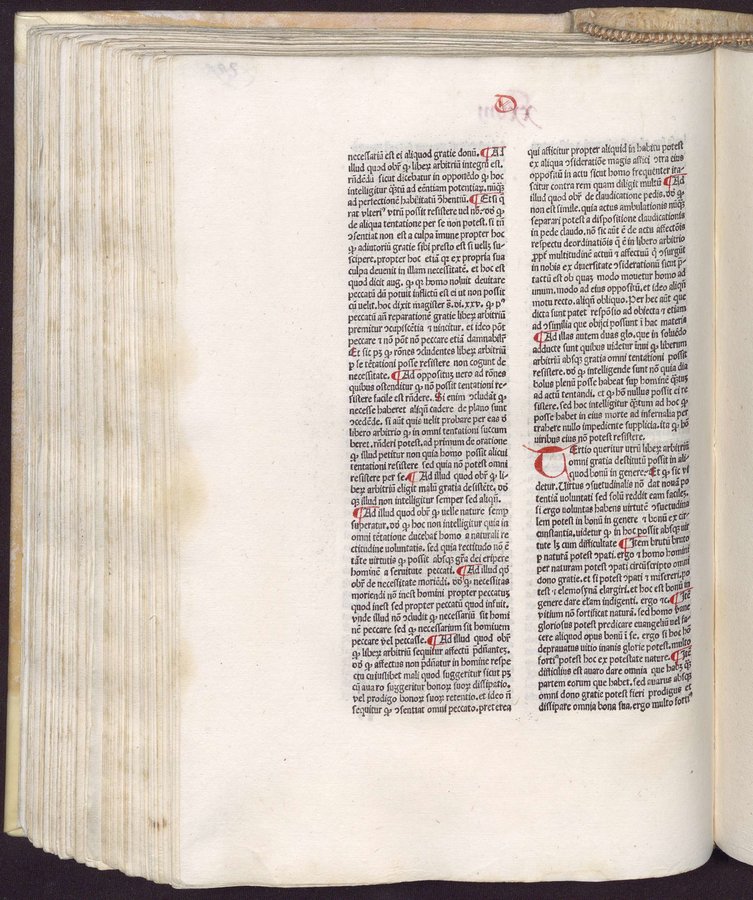 D
necessariū est ei aliquod gratie donū. ¶ Ad
illud quod obr̄ ꝙ liberꝝ arbitriū integrū est.
rn̄dēdū sicut dicebatur in opponēdo ꝙ hoc
intelligitur qͣꝫtū ad eēntiam potentiaꝝ. nūqͣꝫ
ad perfectionē habilitatū ↄhentiū. ¶ Etsi q̄
rat vlteriꝰ vtrū possit resistere vel nō. dō̄ ꝙ
de aliqua tentatione per se non potest. si tn̄
ↄsentiat non est a culpa īmune propter hoc
ꝙ adiutoriū gratie sibi presto est si uellꝫ su-
scipere. propter hoc etiā qꝛ ex propria sua
culpa deuenit in illam necessitatē. et hoc est
quod dicit aug. ꝙ qꝛ homo noluit deuitare
peccatū dū potuit inflictū est ei ut non possit
cū uelit. hoc dixit magister s̄. di. xxv. ꝙ pꝰ
peccatū an̄ reparationē gratie liberꝝ arbitriū
premitur ↄcupiscētia ⁊ uincitur. et ideo pōt
peccare ⁊ nō pōt nō peccare etiā damnabilr̄
Et sic pꝫ ꝙ rōnes ↄcludentes liberꝝ arbitriū
p se tētationi posse resistere non cogunt de
necessitate. ¶ Ad oppositū uero ad rōnes
quibus ostenditur ꝙ nō possit tentationi re-
sistere facile est rn̄dere. Si enim ↄcludāt ꝙ
necesse haberet aliqn̄ cadere de plano sunt
ↄcedēde. si aūt quis velit probare per eas ꝙ
libero arbitrio ꝙ in omni tētatione succum
beret. rn̄deri potest. ad primum de oratione
ꝙ illud petitur non quia homo possit alicui
tentationi resistere sed quia nō potest omni
resistere per se. ¶ Ad illud quod obr̄ ꝙ li-
berꝝ arbitriū eligit malū gratia desistēte. dō̄
ꝙ illud non intelligitur semper sed aliqn̄.
¶ Ad illud quod obr̄ ꝙ uelle nature semp
superatur. dō̄ ꝙ hoc non intelligitur quia in
omni tētatione ducebat homo a naturali re
ctitudine voluntatis. sed quia rectitudo nō ē
tāte virtutis ꝙ possit absqꝫ grā dei eripere
hominē a seruitute peccati. ¶ Ad illud qd̄
obr̄ de necessitate moriēdi. dō̄ ꝙ necessitas
moriendi nō inest homini propter peccatuꝫ
quod inest sed propter peccatū quod infuit.
vnde illud nō ↄcludit ꝙ necessariū sit homi
nē peccare sed ꝙ necessarium sit hominem
peccare vel peccasse. ¶ Ad illud quod obr̄
ꝙ liberꝝ arbitriū sequitur affectū pdn̄antes.
dō̄ ꝙ affectus non pdn̄atur in homine respe
ctu cuiuslibet mali quod suggeritur sicut pꝫ
cū auaro suggeritur bonoꝝ suoꝝ dissipatio.
vel prodigo bonoꝝ suoꝝ retentio. et ideo n̄
sequitur ꝙ ↄsentiat omni peccato. preterea
qui afficitur propter aliquid in habitu potest
ex aliqua ↄsideratiōe magis affici ↄtra eius
oppositū in actu sicut homo frequenter ira-
scitur contra rem quam diligit multū ¶ Ad
illud quod obr̄ de claudicatione pedis. dō̄ ꝙ
non est simile. quia actus ambulationis nūqͣꝫ
separari potest a dispositione claudicationis
in pede claudo. nō sic aūt ē de actu affectōis
respectu deordinatiōis q̄ ē in libero arbitrio
ꝓpꝑ multitudinē actuū ⁊ affectuū q̄ ↄsurgūt
in nobis ex diuersitate ↄsiderationū sicut p̄-
tactū est ob quaꝫ modo mouetur homo ad
unum. modo ad eius oppositū. et ideo aliqn̄
motu recto. aliqn̄ obliquo. Per hec aūt que
dicta sunt patet respōsio ad obiecta ⁊ etiam
ad ↄsimilia que obijci possunt ī hac materia
¶ Ad illas autem duas glo. que in soluēdo
adducte sunt quibus uidetur īnui ꝙ liberum
arbitriū absqꝫ gratia omni tentationi possit
resistere. dō̄ ꝙ intelligende sunt nō quia dia
bolus plenū posse habeat sup hominē qͣꝫtuꝫ
ad actū tentandi. et ꝙ hō nullus possit ei re
sistere. sed hoc intelligitur qͣꝫtum ad hoc ꝙ
posse habet in eius morte ad infernalia per
trahere nullo impediente supplicia. ita ꝙ hō
viribus eius nō potest resistere.
TErtio queritur utrū liberꝝ arbitriū
omni gratia destitutū possit in ali-
quod bonū in genere. Et ꝙ sic vi
detur. Virtus ↄsuetudinalis nō dat nouā po
tentiā voluntati sed solū reddit eam faciles.
si ergo voluntas habens virtutē ↄsuetudina
lem potest in bonū in genere ⁊ bonū ex cir-
cunstantia. uidetur ꝙ in hoc possit absqꝫ uir
tute lꝫ cum difficultate ¶ Item brutū bruto
p naturā potest ↄpati. ergo ⁊ homo homini
per naturam potest ↄpati circūscripto omni
dono gratie. et si potest ↄpati ⁊ misereri. po
test ⁊ elemosynā elargiri. et hoc est bonū in
genere dare elam indigenti. ergo ⁊c. ¶ Itē
vitium nō fortificat naturā. sed homo vane
gloriosus potest predicare euangeliū vel fa-
cere aliquod opus bonū ī se. ergo si hoc hō
deprauatus vitio inanis glorie potest. multo
fortiꝰ potest hoc ex potestate nature. ¶ Itē
difficilius est auaro dare omnia que habꝫ qͣꝫ
partem eorum que habet. sed auarus absqꝫ
omni dono gratie potest fieri prodigus et
dissipare omnia bona sua. ergo multo fortiꝰ